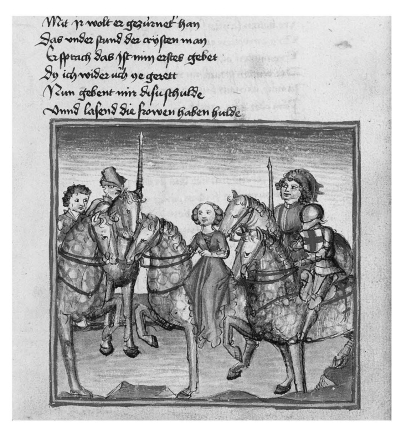 Mit Ir wolt er gezürnet han
Das vnder stund der cristen man
Er sprach das ist min erstes gebet
Dz ich wider uch ye gerett
Nun gebent mir disu schulde
Vnnd lasend die frowen haben hulde